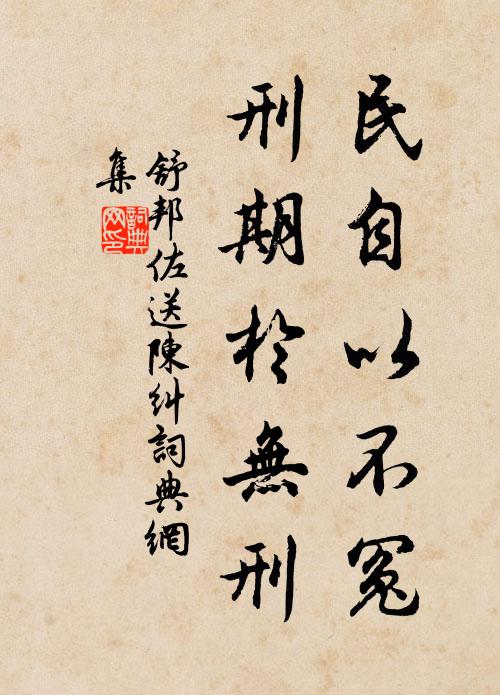 民自以不冤
刑期於無刑
舒邦佐送陳糾詞典網
集
詞典網印